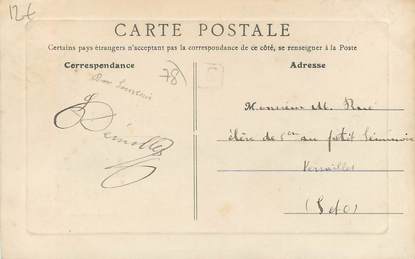 12€
CARTE POSTALE
Certains pays étrangers n'acceptant pas la correspondance de ce côté, se renseigner à la Poste
Correspondance
Adresse
78
Bon Souvenir
Monsieur M.
élève de au petit Séminaire
Versailles
(S et O)